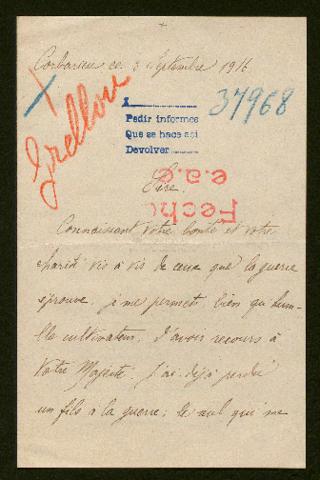 Corbarieu ce 3 Septembre 1916
37968
Grellou
1
Pedir informes
Que se hace asi
Devolver
Fecho
e.a.e
Sire,
Connaissant votre bonté et votre
charité vis à vis de ceux que la guerre
éprouve, je me permets, bien qu'hum-
ble cultivateur, d'avoir recours à
Votre Majesté. J'ai déjà perdu
un fils à la guerre; le seul qui me